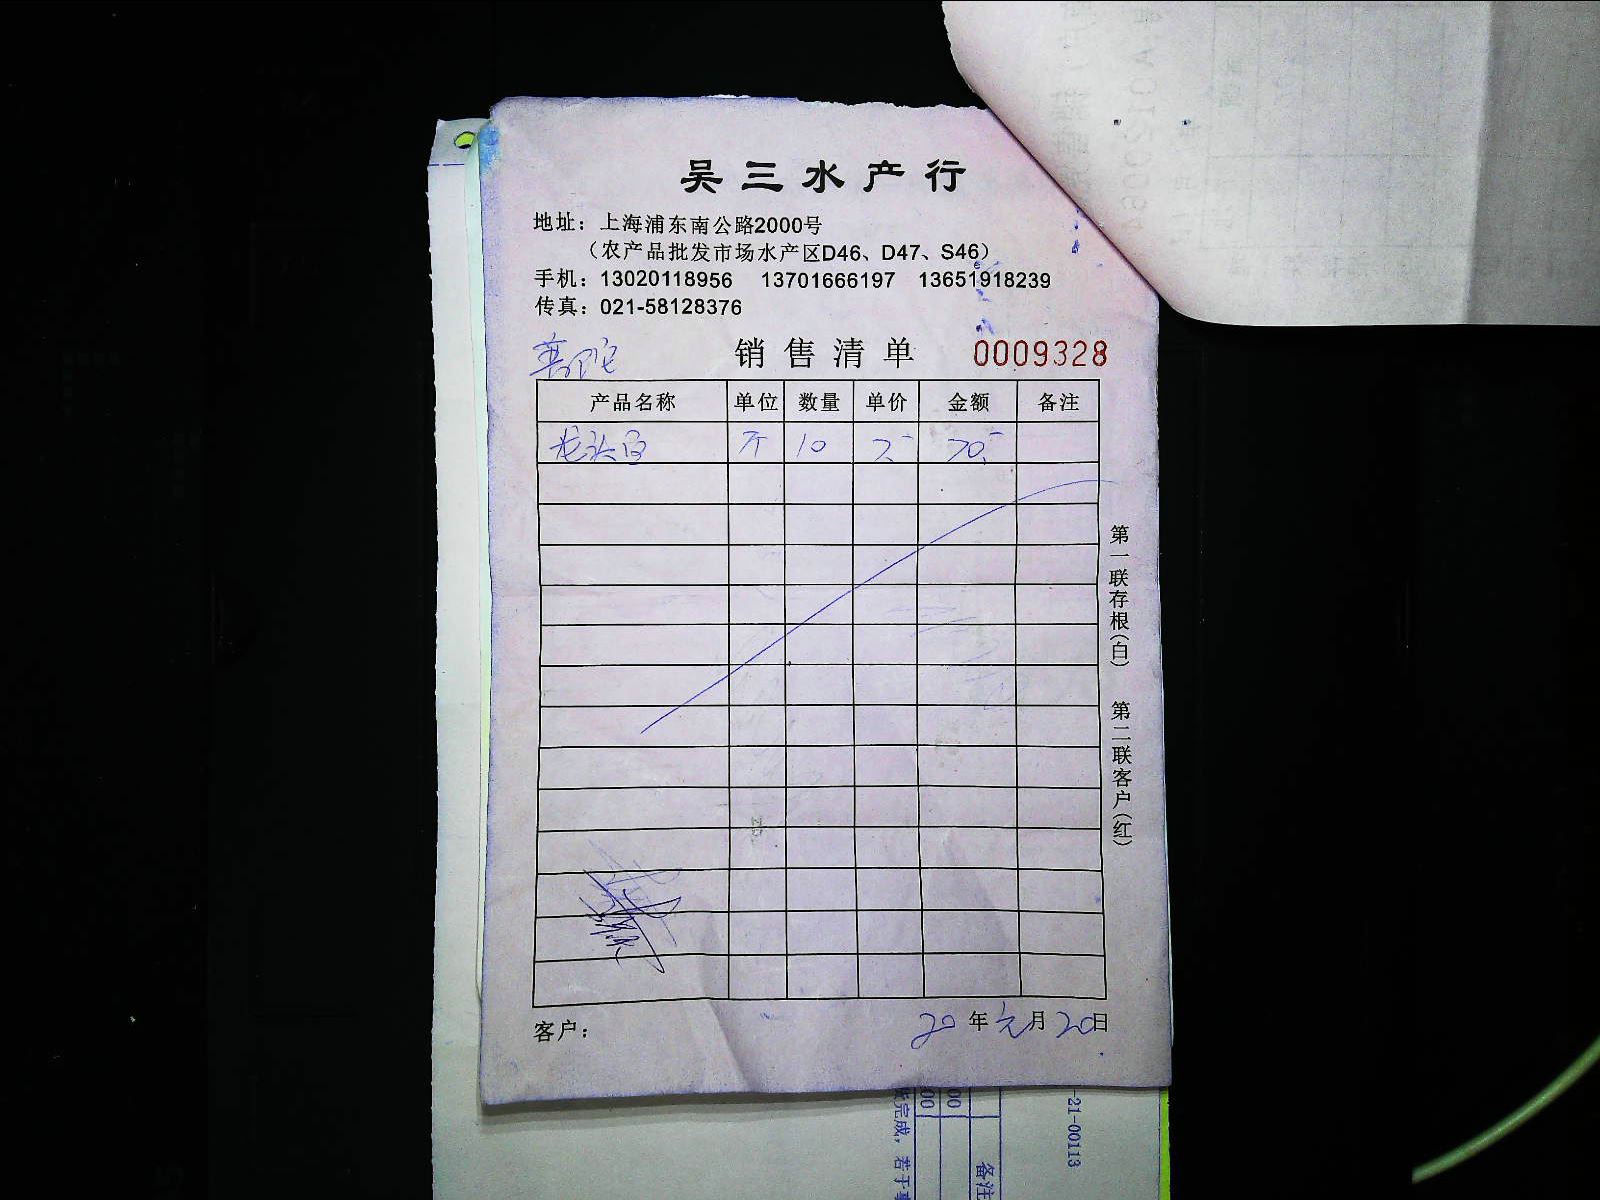 吴三水产行
地址：上海浦东南公路2000号
（农产品批发市场水产区D46、D47、S46）
手机：13020118956 13701666197 13651918239
传真：021-58128376
普陀
销售清单 0009328
产品名称 单位 数量 单价 金额 备注
龙头 斤 10 7- 70-
第一联存根（白） 第二联客户（红）
客户： 20年元月20日
00 00
完成，若于
备注
-21-00113